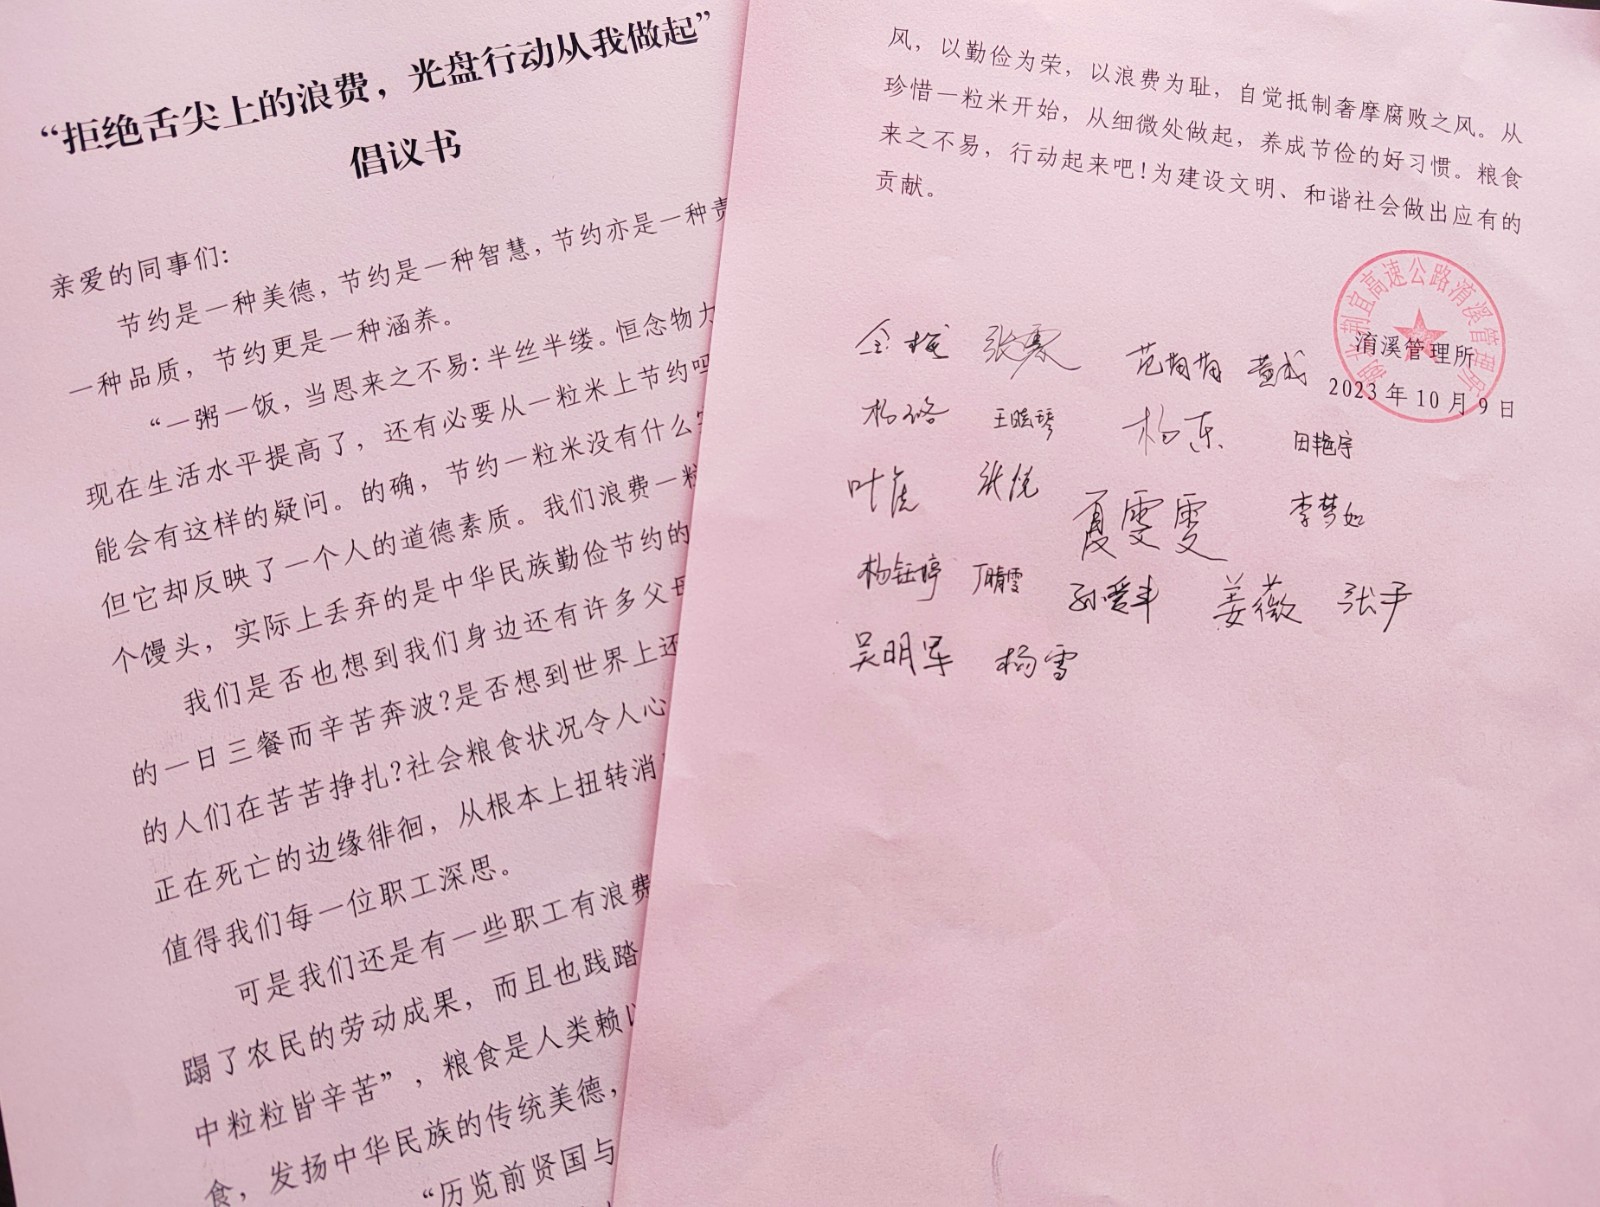 “拒绝舌尖上的浪费，光盘行动从我做起”
倡议书
亲爱的同事们：
节约是一种美德，节约是一种智慧，节约亦是一种责
一种品质，节约更是一种涵养。
“一粥一饭，当恩来之不易：半丝半缕。恒念物力
现在生活水平提高了，还有必要从一粒米上节约吗
能会有这样的疑问。的确，节约一粒米没有什么
但它却反映了一个人的道德素质。我们浪费一粒
个馒头，实际上丢弃的是中华民族勤俭节约的
我们是否也想到我们身边还有许多父母
的一日三餐而辛苦奔波？是否想到世界上还
的人们在苦苦挣扎？社会粮食状况令人心
正在死亡的边缘徘徊，从根本上扭转消
值得我们每一位职工深思。
可是我们还是有一些职工有浪费
蹋了农民的劳动成果，而且也践踏
中粒粒皆辛苦”，粮食是人类赖以
食，发扬中华民族的传统美德，
“历览前贤国与
风，以勤俭为荣，以浪费为耻，自觉抵制奢摩腐败之风。从
珍惜一粒米开始，从细微处做起，养成节俭的好习惯。粮食
来之不易，行动起来吧！为建设文明、和谐社会做出应有的
贡献。
荆宜高速公路淯溪管理所
淯溪管理所
2023年10月9日
范萌萌 黄成
杨东 田艳宇
张悦 夏雯雯 李梦如
杨钰婷 丁晴雯 孙爱丰 姜薇 张平
吴明军 杨雪